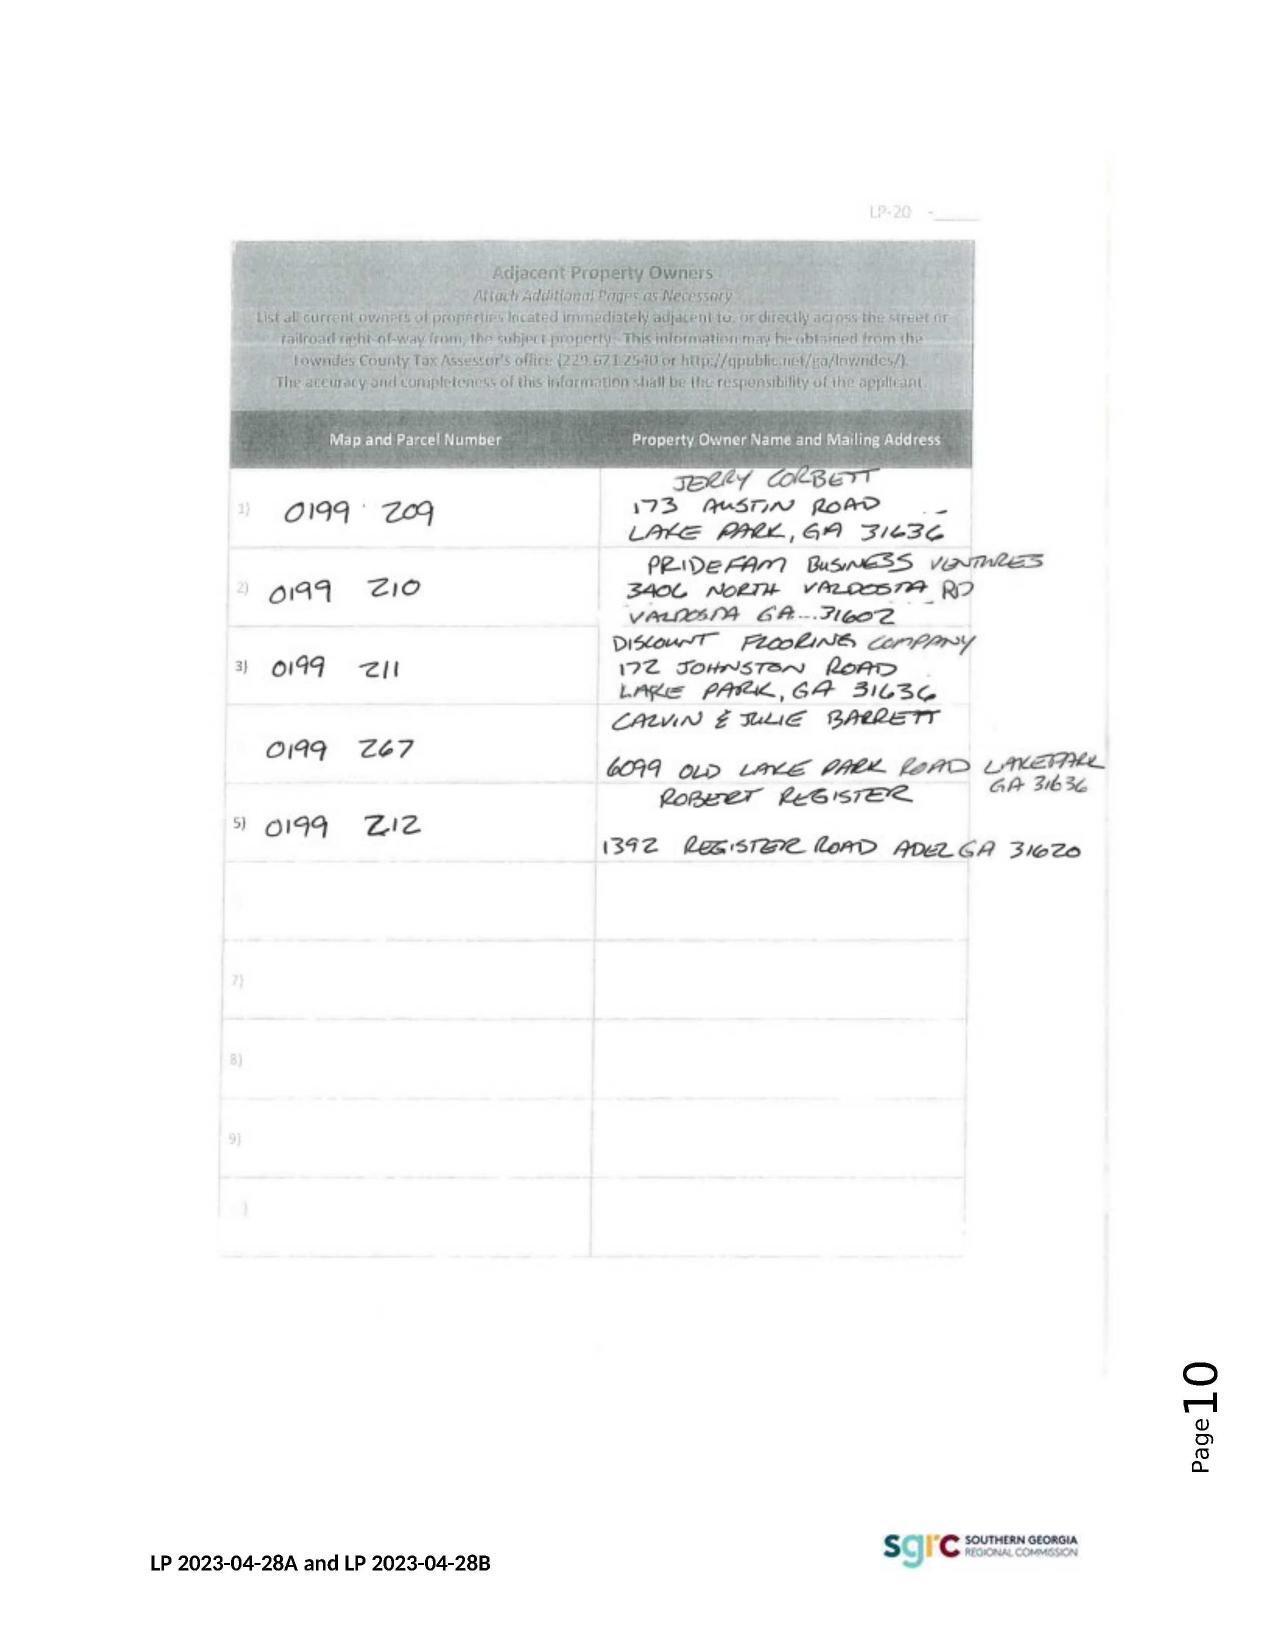 LP-20 -_____
Adjacent Property Owners
Attach Additional Pages as Necessary
List all current owners of properties located immediately adjacent to, or directly across the street or
railroad right-of-way from, the subject property. This information may be obtained from the
Lowndes County Tax Assessor's office (229.671.2540 or http://qpublic.net/ga/lowndes/).
The accuracy and completeness of this information shall be the responsibility of the applicant.
Map and Parcel Number Property Owner Name and Mailing Address
JERRY CORBETT
1) 0199 209 173 AUSTIN ROAD
LAKE PARK, GA 31636
PRIDEFAM BUSINESS VENTURES
2) 0199 210 3406 NORTH VALDOSTA RD
VALDOSTA GA 31602
DISCOUNT FLOORING COMPANY
3) 0199 211 172 JOHNSTON ROAD
LAKE PARK, GA 31636
CALVIN & JULIE BARRETT
0199 267
6099 OLD LAKE PARK ROAD LAKE PARK
GA 31636
ROBERT REGISTER
5) 0199 212
1392 REGISTER ROAD ADEL GA 31620
7)
8)
9)
)
Page 10
LP 2023-04-28A and LP 2023-04-28B
sgrc SOUTHERN GEORGIA
REGIONAL COMMISSION